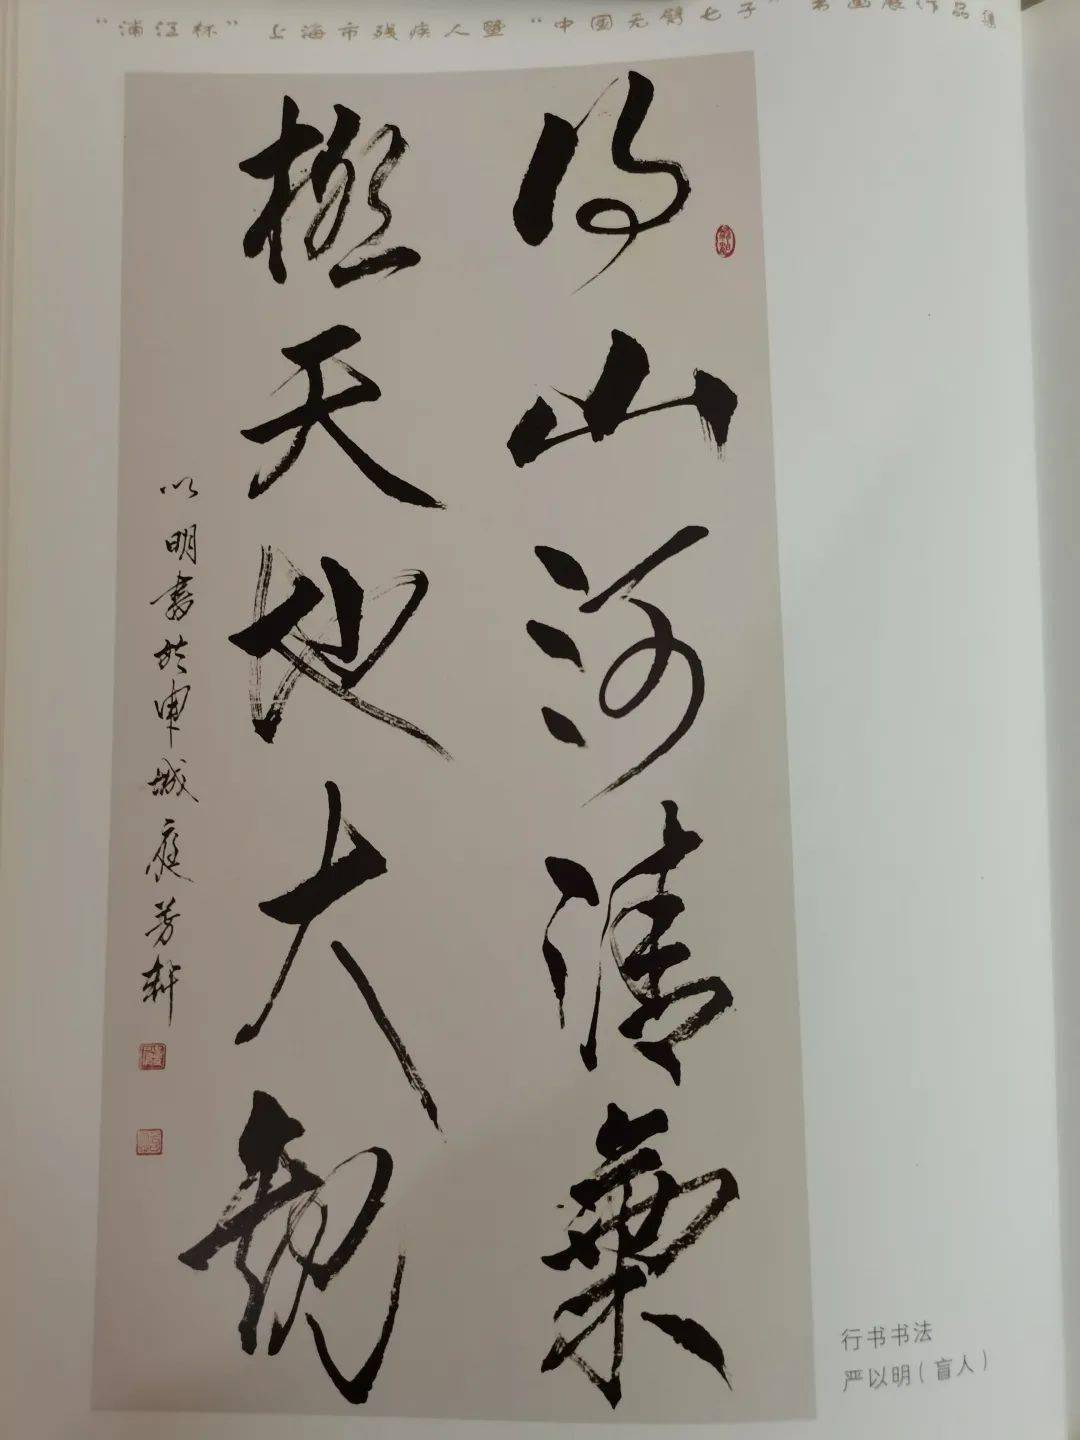 “浦江杯”上海市残疾人暨“中国无臂七子”书画展作品集
得山河清气
极天地大观
以明书於申城庭芳轩
行书书法
严以明（盲人）